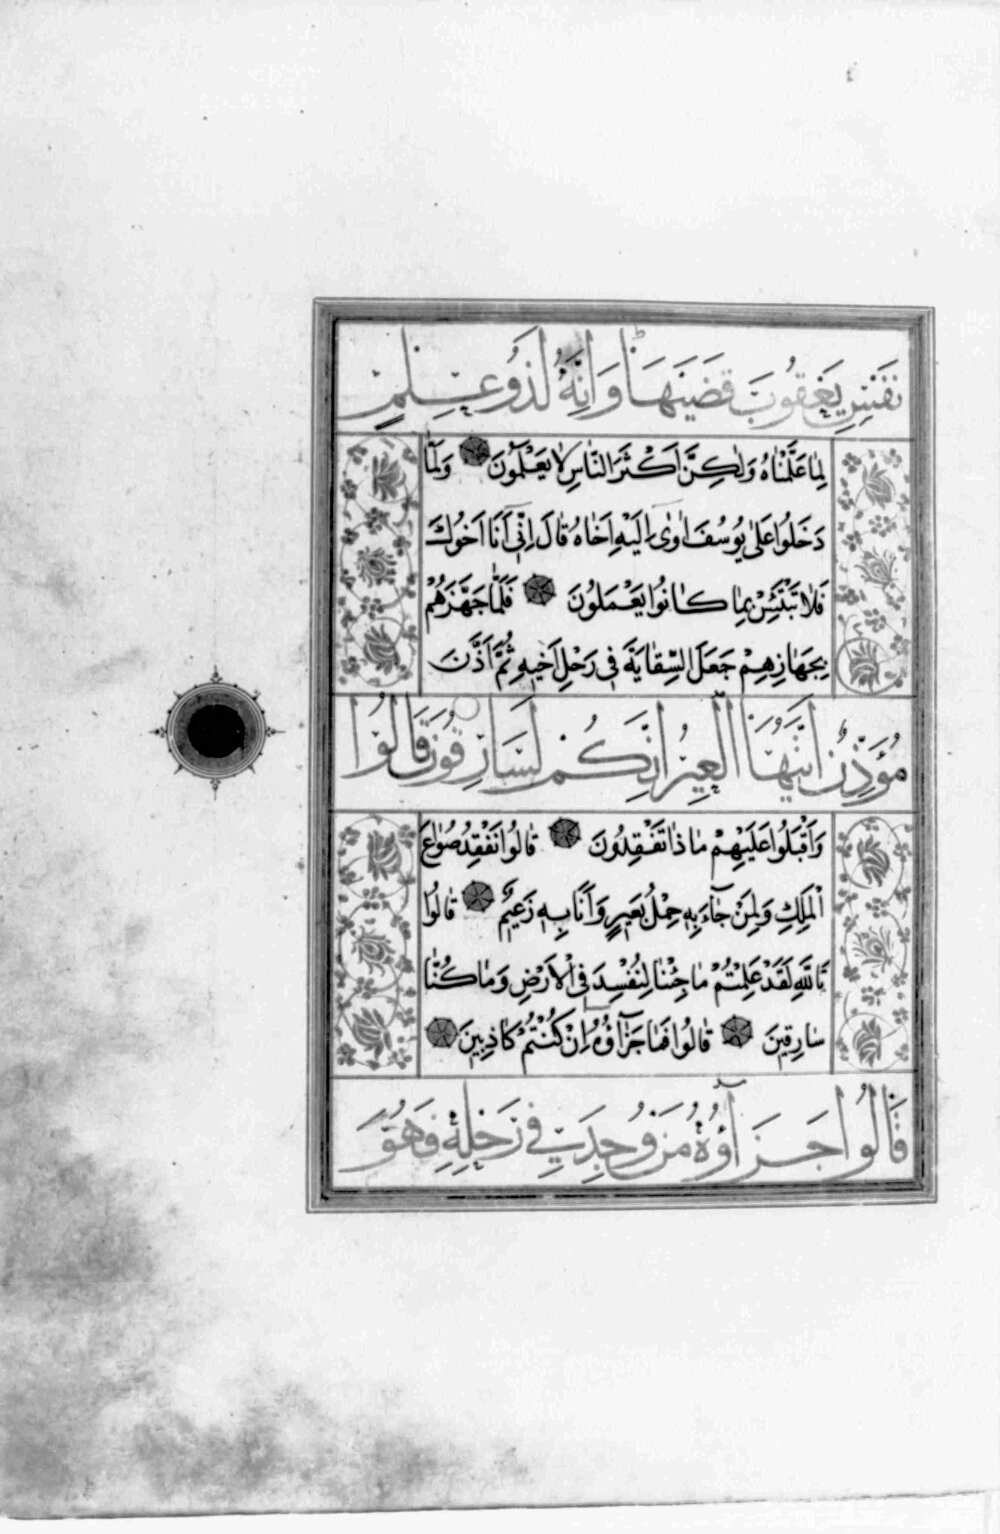 نَفْسِ يَعْقُوبَ قَضَيٰهَا وَاِنَّهُ لَذُو عِلْمٍ
لِمَا عَلَّمْنَاهُ وَلٰكِنَّ اَكْثَرَ النَّاسِ لَا يَعْلَمُونَ وَلَمَّا
دَخَلُوا عَلٰى يُوسُفَ اٰوٰى اِلَيْهِ اَخَاهُ قَالَ اِنِّى اَنَا اَخُوكَ
فَلَا تَبْتَئِسْ بِمَا كَانُوا يَعْمَلُونَ فَلَمَّا جَهَّزَهُمْ
بِجَهَازِهِمْ جَعَلَ السِّقَايَةَ فِى رَحْلِ اَخِيهِ ثُمَّ اَذَّنَ
مُؤَذِّنٌ اَيَّتُهَا الْعِيرُ اِنَّكُمْ لَسَارِقُونَ قَالُوا
وَاَقْبَلُوا عَلَيْهِمْ مَاذَا تَفْقِدُونَ قَالُوا نَفْقِدُ صُوَاعَ
الْمَلِكِ وَلِمَنْ جَآءَ بِهِ حِمْلُ بَعِيرٍ وَاَنَا بِهِ زَعِيمٌ قَالُوا
تَاللّٰهِ لَقَدْ عَلِمْتُمْ مَا جِئْنَا لِنُفْسِدَ فِى الْاَرْضِ وَمَا كُنَّا
سَارِقِينَ قَالُوا فَمَا جَزَآؤُهُ اِنْ كُنْتُمْ كَاذِبِينَ
قَالُوا جَزَآؤُهُ مَنْ وُجِدَ فِى رَحْلِهِ فَهُوَ